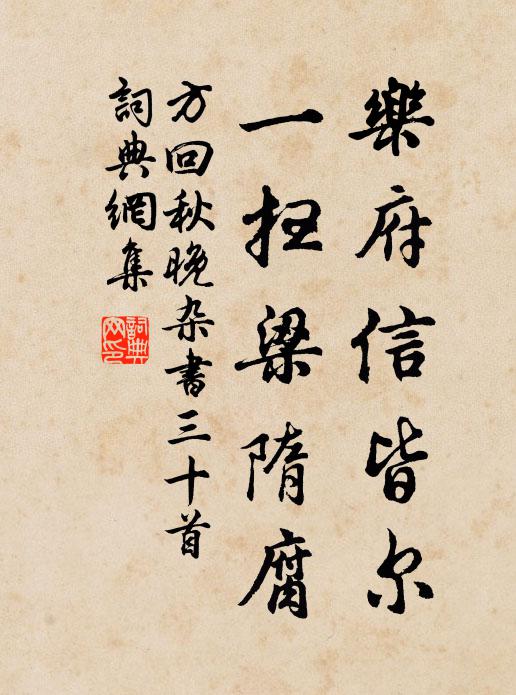 樂府信皆尔
一扫梁隋腐
方回秋晚杂書三十首
詞典網集
詞典網印